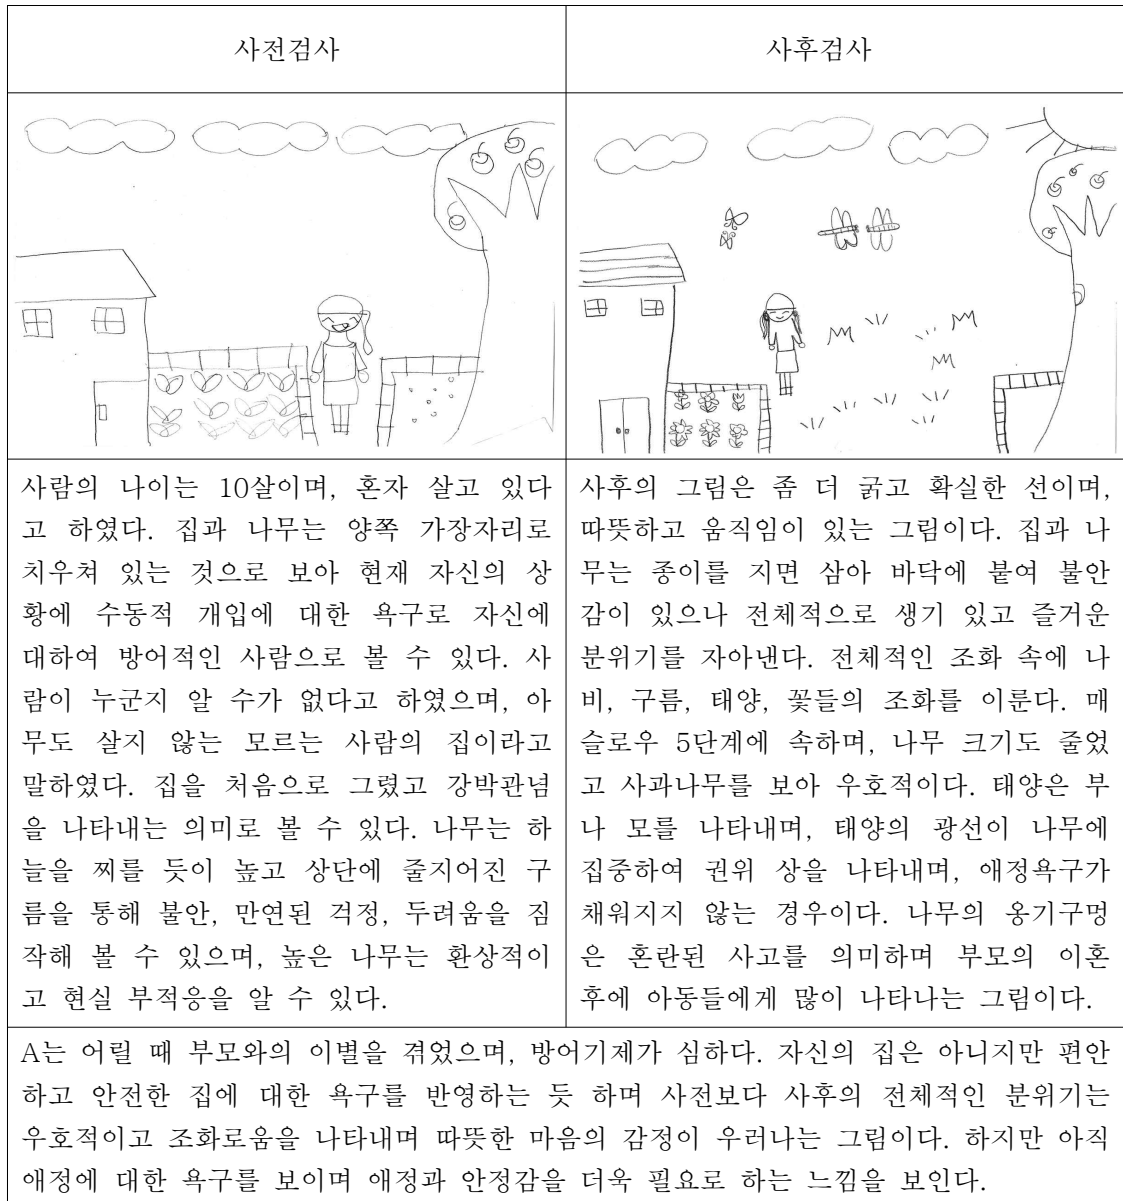 사전검사
사후검사
사람의 나이는 10살이며, 혼자 살고 있다
고 하였다. 집과 나무는 양쪽 가장자리로
치우쳐 있는 것으로 보아 현재 자신의 상
황에 수동적 개입에 대한 욕구로 자신에
대하여 방어적인 사람으로 볼 수 있다. 사
람이 누군지 알 수가 없다고 하였으며, 아
무도 살지 않는 모르는 사람의 집이라고
말하였다. 집을 처음으로 그렸고 강박관념
을 나타내는 의미로 볼 수 있다. 나무는 하
늘을 찌를 듯이 높고 상단에 줄지어진 구
름을 통해 불안, 만연된 걱정, 두려움을 짐
작해 볼 수 있으며, 높은 나무는 환상적이
고 현실 부적응을 알 수 있다.
사후의 그림은 좀 더 굵고 확실한 선이며,
따뜻하고 움직임이 있는 그림이다. 집과 나
무는 종이를 지면 삼아 바닥에 붙여 불안
감이 있으나 전체적으로 생기 있고 즐거운
분위기를 자아낸다. 전체적인 조화 속에 나
비, 구름, 태양, 꽃들의 조화를 이룬다. 매
슬로우 5단계에 속하며, 나무 크기도 줄었
고 사과나무를 보아 우호적이다. 태양은 부
나 모를 나타내며, 태양의 광선이 나무에
집중하여 권위 상을 나타내며, 애정욕구가
채워지지 않는 경우이다. 나무의 옹기구멍
은 혼란된 사고를 의미하며 부모의 이혼
후에 아동들에게 많이 나타나는 그림이다.
A는 어릴 때 부모와의 이별을 겪었으며, 방어기제가 심하다. 자신의 집은 아니지만 편안
하고 안전한 집에 대한 욕구를 반영하는 듯 하며 사전보다 사후의 전체적인 분위기는
우호적이고 조화로움을 나타내며 따뜻한 마음의 감정이 우러나는 그림이다. 하지만 아직
애정에 대한 욕구를 보이며 애정과 안정감을 더욱 필요로 하는 느낌을 보인다.